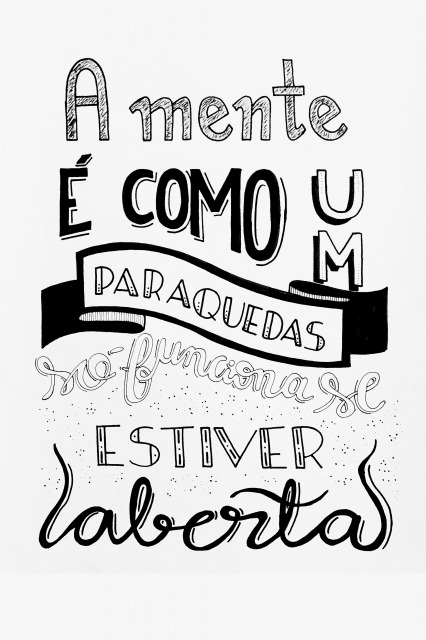 A mente
É COMO UM
PARAQUEDAS
só funciona se
ESTIVER
aberta